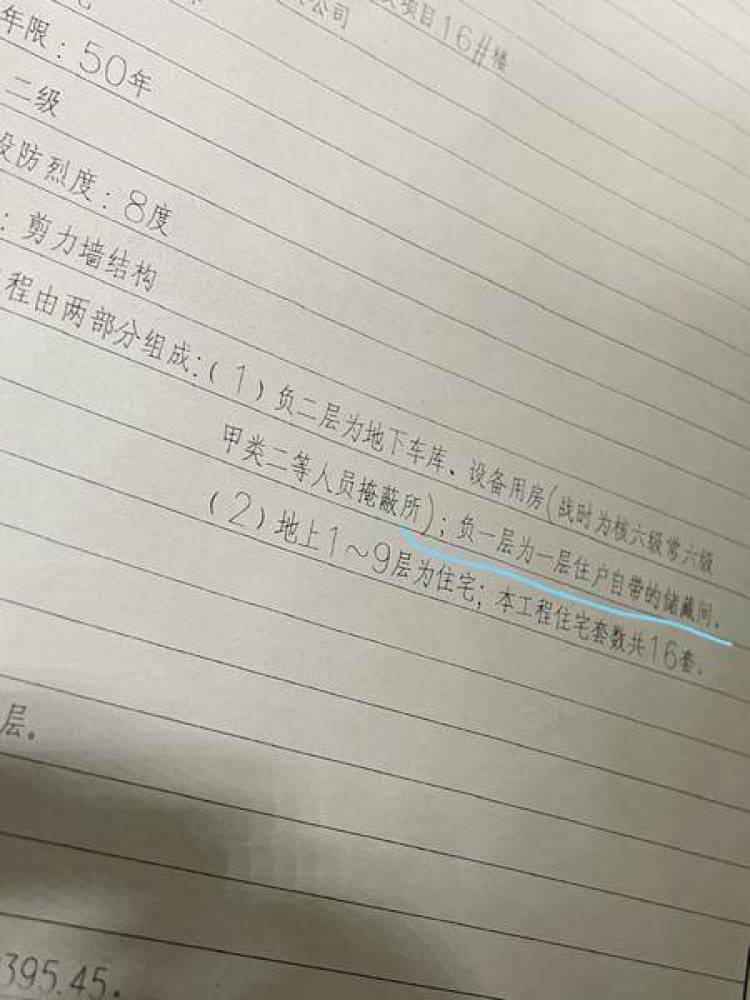 项目16#楼
公司
年限：50年
二级
设防烈度：8度
：剪力墙结构
程由两部分组成：（1）负二层为地下车库、设备用房（战时为核六级常六级
甲类二等人员掩蔽所）；负一层为一层住户自带的储藏间.
（2）地上1～9层为住宅；本工程住宅套数共16套.
层.
395.45.